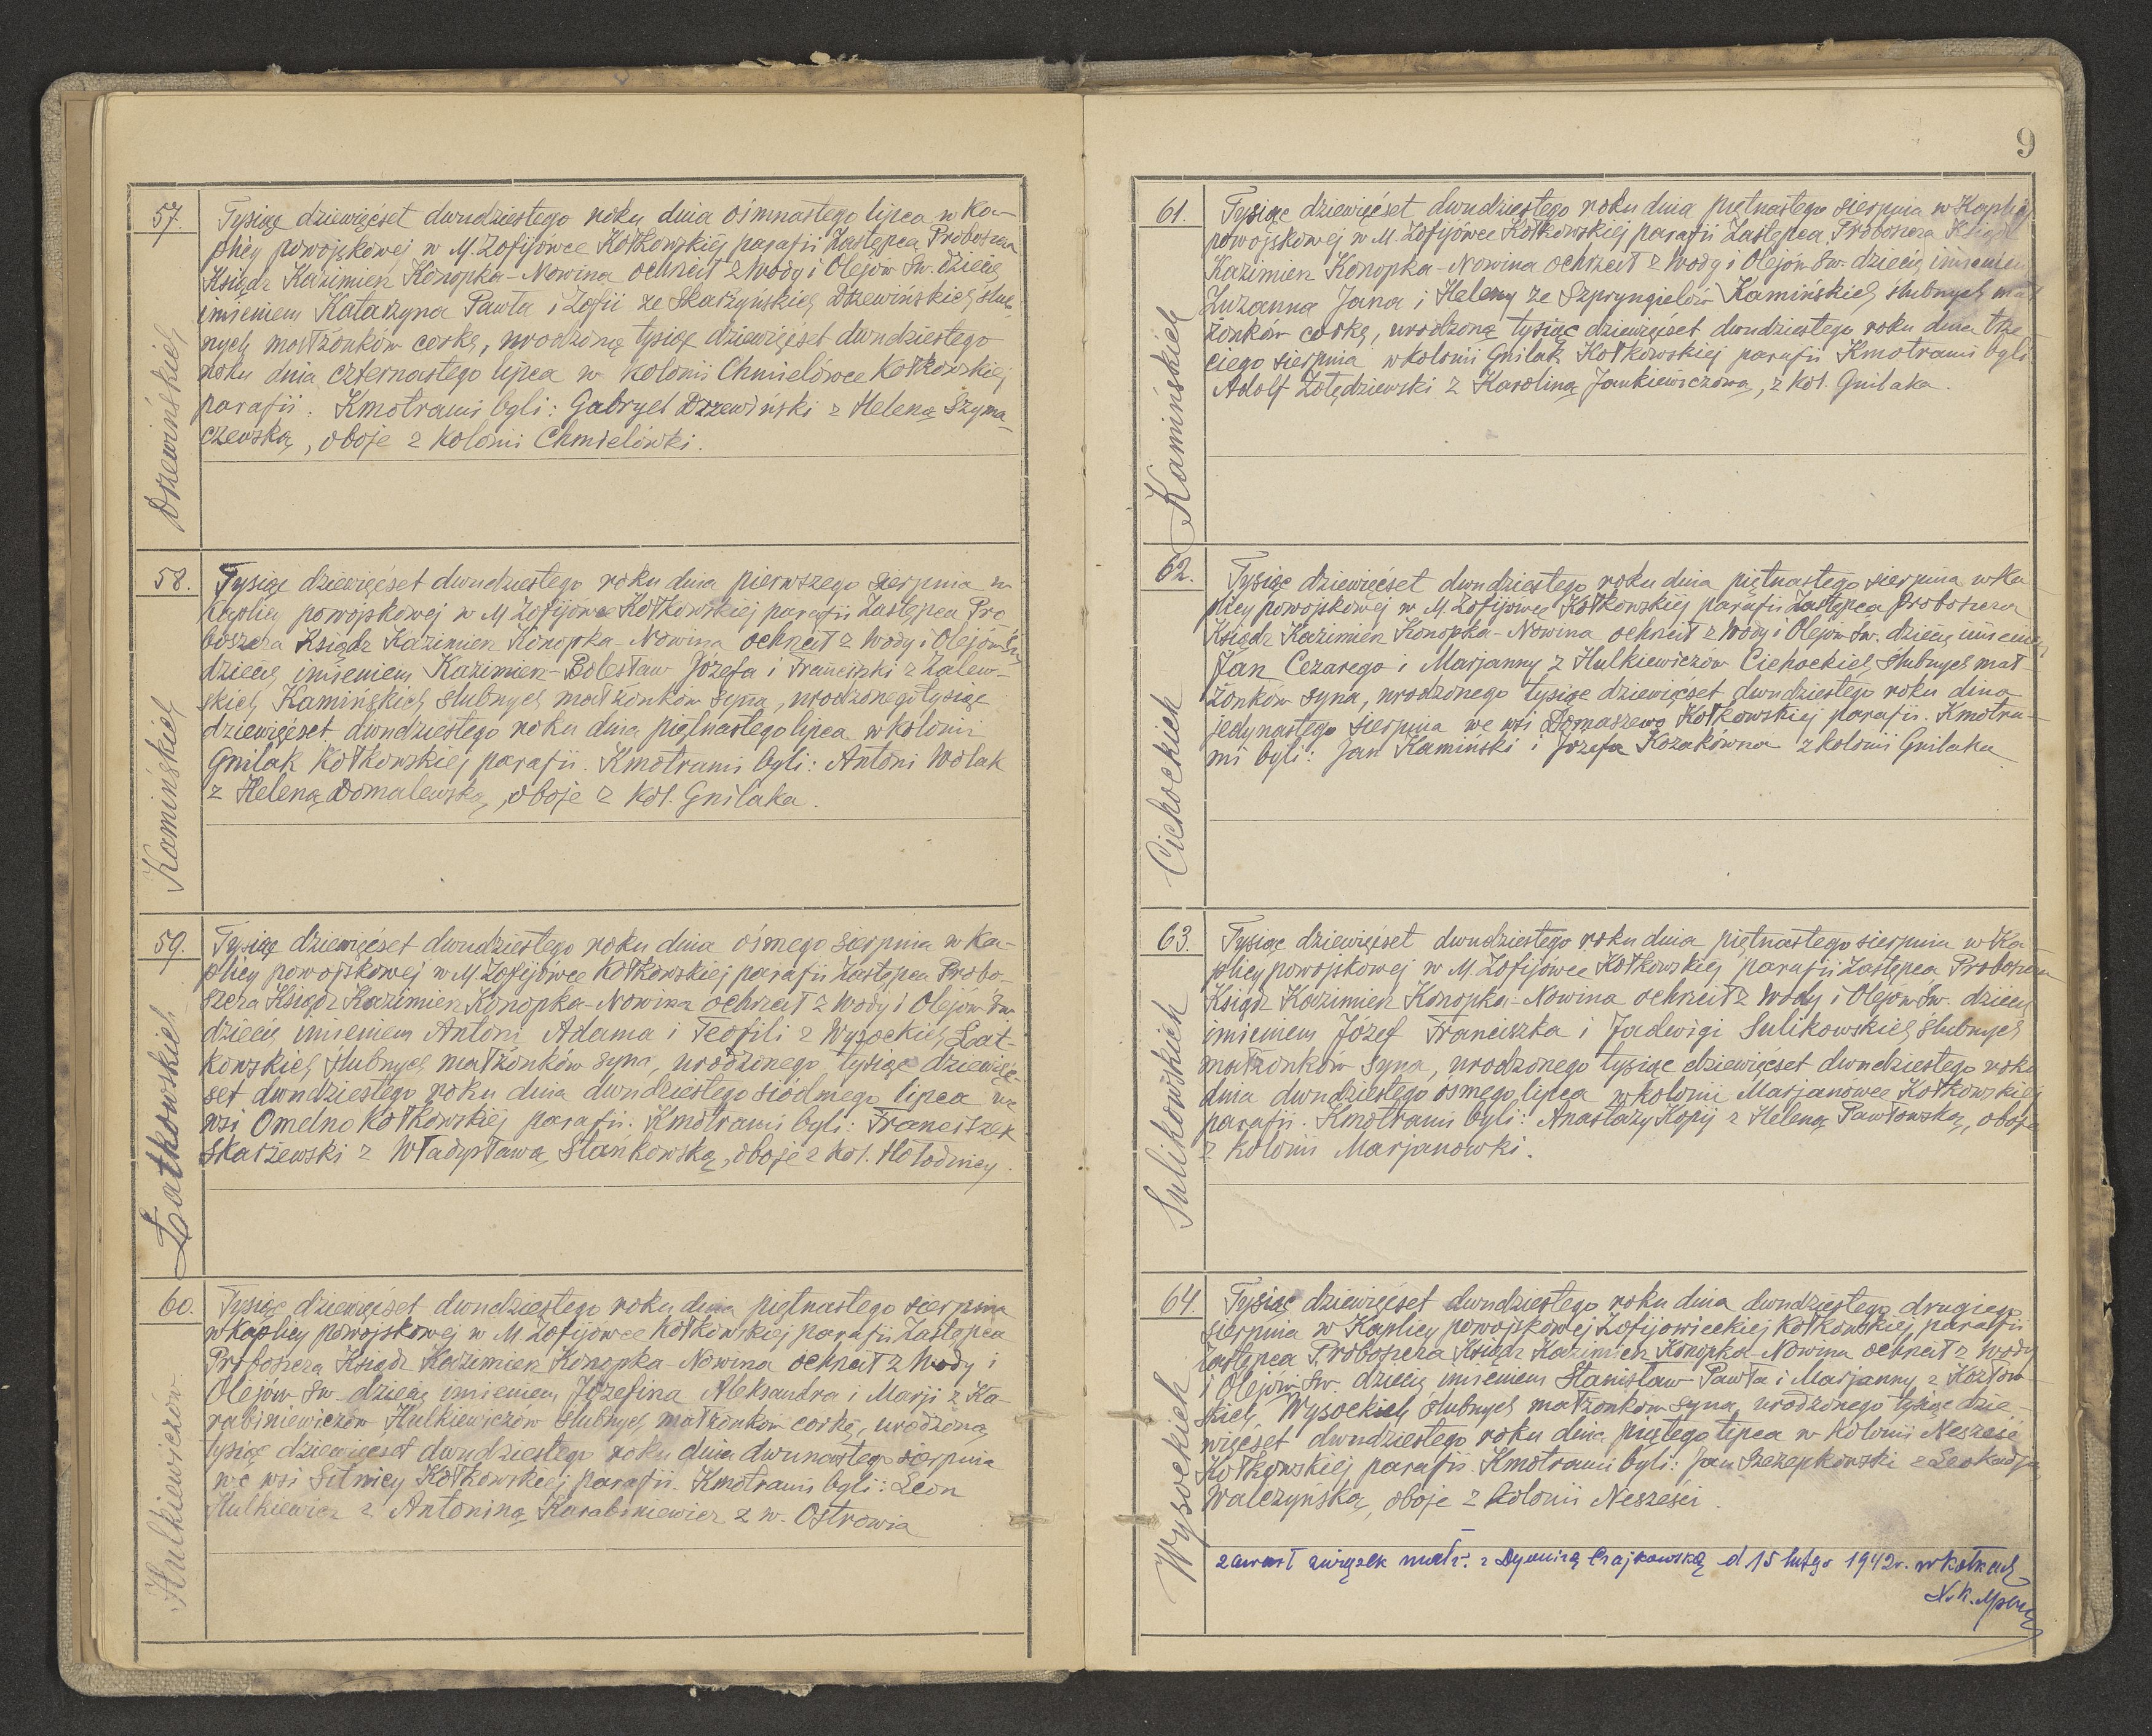 57.
Drzewińskich
Tysiąc dziewięćset dwudziestego roku dnia ośmnastego lipca w Ka-
plicy powojskowej w M. Zofijówce Kołkowskiej parafii Zastępca Proboszcza
Ksiądz Kazimierz Konopka-Nowina ochrzcił z Wody i Olejów Św. dziecię
imieniem Katarzyna Pawła i Zofii ze Skarzyńskich Drzewińskich ślub-
nych małżonków córkę, urodzoną tysiąc dziewięćset dwudziestego
roku dnia czternastego lipca w kolonii Chmielówce Kołkowskiej
parafii. Kmotrami byli: Gabryel Drzewiński z Heleną Szyma-
czewską, oboje z kolonii Chmielówki.
58.
Kamińskich
Tysiąc dziewięćset dwudziestego roku dnia pierwszego sierpnia w
Kaplicy powojskowej w M Zofijówce Kołkowskiej parafii Zastępca Pro-
boszcza Ksiądz Kazimierz Konopka-Nowina ochrzcił z Wody i Olejów Św
dziecię imieniem Kazimierz-Bolesław Józefa i Franciszki z Zalew-
skich Kamińskich ślubnych małżonków syna, urodzonego tysiąc
dziewięćset dwudziestego roku dnia piętnastego lipca w kolonii
Gnilak Kołkowskiej parafii. Kmotrami byli: Antoni Wolak
z Heleną Domalewską, oboje z kol. Gnilaka.
59.
Łatkowskich
Tysiąc dziewięćset dwudziestego roku dnia ósmego sierpnia w Ka-
plicy powojskowej w M Zofijówce Kołkowskiej parafii Zastępca Probo-
szcza Ksiądz Kazimierz Konopka-Nowina ochrzcił z Wody i Olejów Św.
dziecię imieniem Antoni Adama i Teofili z Wysockich Łat-
kowskich ślubnych małżonków syna, urodzonego tysiąc dziewięć-
set dwudziestego roku dnia dwudziestego siódmego lipca we
wsi Omelno Kołkowskiej parafii. Kmotrami byli: Franciszek
Skarżewski z Władysławą Stańkowską, oboje z kol. Hołodnicy.
60.
Hulkiewiczów
Tysiąc dziewięćset dwudziestego roku dnia piętnastego sierpnia
w Kaplicy powojskowej w M. Zofijówce Kołkowskiej parafii Zastępca
Proboszcza Ksiądz Kazimierz Konopka-Nowina ochrzcił z Wody i
Olejów Św. dziecię imieniem Józefina Aleksandra i Marji z Ka-
rabiniewiczów Hulkiewiczów ślubnych małżonków córkę, urodzoną
tysiąc dziewięćset dwudziestego roku dnia dwunastego sierpnia
we wsi Sitnicy Kołkowskiej parafii. Kmotrami byli: Leon
Hulkiewicz z Antoniną Karabiniewicz z w. Ostrowia
9
61.
Kamińskich
Tysiąc dziewięćset dwudziestego roku dnia piętnastego sierpnia w Kaplicy
powojskowej w M. Zofijówce Kołkowskiej parafii Zastępca Proboszcza Ksiądz
Kazimierz Konopka-Nowina ochrzcił z Wody i Olejów Św. dziecię imieniem
Zuzanna Jana i Heleny ze Szpryngielów Kamińskich ślubnych mał-
żonków córkę, urodzoną tysiąc dziewięćset dwudziestego roku dnia trze-
ciego sierpnia w kolonii Gnilak Kołkowskiej parafii Kmotrami byli
Adolf Żołędziewski z Karoliną Jankiewiczową, z kol. Gnilaka.
62.
Cichockich
Tysiąc dziewięćset dwudziestego roku dnia piętnastego sierpnia w Ka-
plicy powojskowej w M. Zofijówce Kołkowskiej parafii Zastępca Proboszcza
Ksiądz Kazimierz Konopka-Nowina ochrzcił z Wody i Olejów Św. dziecię imieniem
Jan Cezarego i Marjanny z Hulkiewiczów Cichockich ślubnych mał-
żonków syna, urodzonego tysiąc dziewięćset dwudziestego roku dnia
jedynastego sierpnia we wsi Domaszewo Kołkowskiej parafii. Kmotra-
mi byli: Jan Kamiński i Józefa Kozakówna z kolonii Gnilaka
63.
Sulikowskich
Tysiąc dziewięćset dwudziestego roku dnia piętnastego sierpnia w Ka-
plicy powojskowej w M. Zofijówce Kołkowskiej parafii Zastępca Proboszcza
Ksiądz Kazimierz Konopka-Nowina ochrzcił z Wody i Olejów Św. dziecię
imieniem Józef Franciszka i Jadwigi Sulikowskich ślubnych
małżonków syna, urodzonego tysiąc dziewięćset dwudziestego roku
dnia dwudziestego ósmego lipca w kolonii Marjanówce Kołkowskiej
parafii. Kmotrami byli: Anastazy Kopij z Heleną Pawłowską, oboje
z kolonii Marjanowki.
64.
Wysockich
Tysiąc dziewięćset dwudziestego roku dnia dwudziestego drugiego
sierpnia w Kaplicy powojskowej Zofijowieckiej Kołkowskiej parafii
Zastępca Proboszcza Ksiądz Kazimierz Konopka-Nowina ochrzcił z Wody
i Olejów Św. dziecię imieniem Stanisław Pawła i Marjanny z Kozłow-
skich Wysockich ślubnych małżonków syna, urodzonego tysiąc dzie-
więćset dwudziestego roku dnia piątego lipca w kolonii Nesześć
Kołkowskiej parafii. Kmotrami byli: Jan Szczepkowski z Leokadją
Walczyńską, oboje z kolonii Nesześci.
zawarł związek małż. z Dyonizą Czajkowską d 15 lutego 1942r. w Kołkach